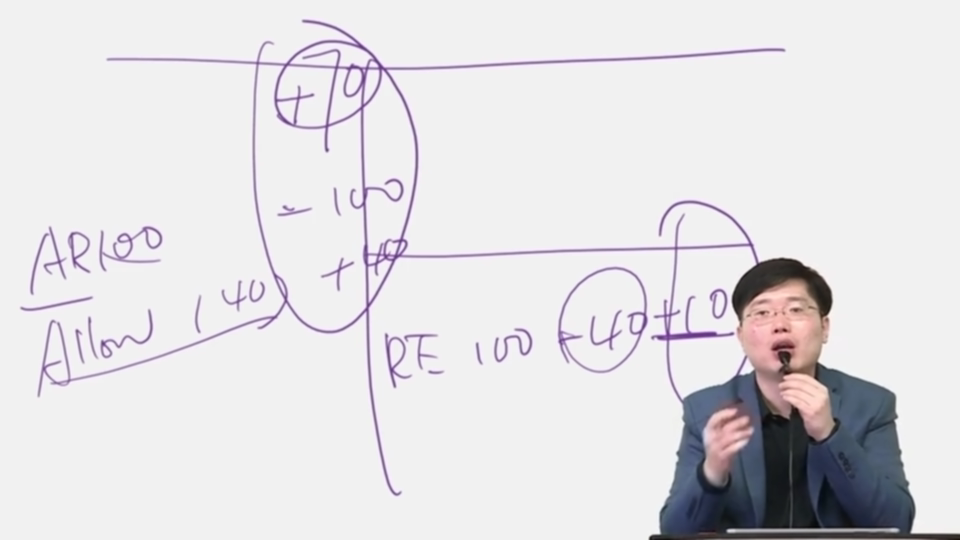 +70
- 100
+40
AR100
Allow (40)
RE 100 -40 +10